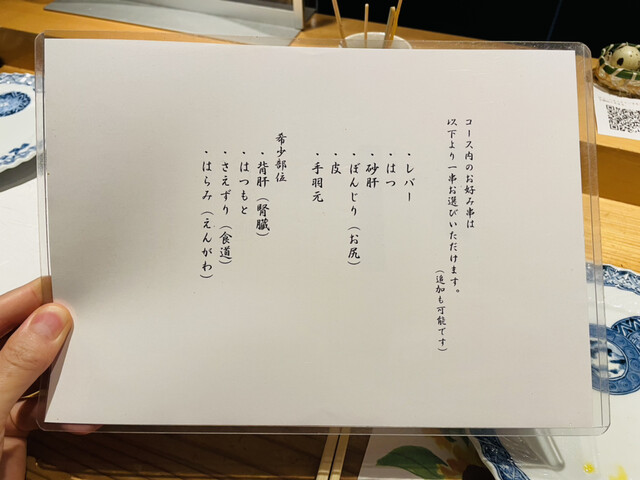 コース内のお好み串は
以下より一串お選びいただけます。
(追加も可能です)
・レバー
・はつ
・砂肝
・ぼんじり(お尻)
・皮
・手羽元
希少部位
・背肝(腎臓)
・はつもと
・さえずり(食道)
・はらみ(えんがわ)